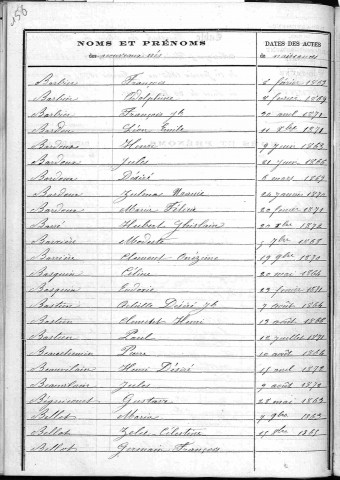 156
NOMS ET PRÉNOMS DATES DES ACTES
des nouveaux nés de naissances
Barbier François février 1863
Barbier Adolphine février 1869
Barbier François Jh 20 avril 1871
Bardon Léon Emile 11 8bre 1871
Bardonas Henri 9 juin 1863
Bardoux Jules 21 juin 1866
Bardoux Désiré 6 mars 1869
Bardoux Zulma Noemie 24 janvier 1870
Bardoux Marie Félicie 20 février 1871
Baré Hubert Ghislain 20 8bre 1872
Barrière Modeste 7bre 1868
Barrière Clement Onézime 19 9bre 1870
Basquin Céline 20 mai 1864
Basquin Ludovic 22 février 1870
Bastien Achille Désiré Jh 7 août 1864
Bastien Clundet Henri 13 août 1868
Bastien Paul 12 juillet 1871
Beauchemin Pierre 10 août 1864
Beauvelain Henri Désiré 15 avril 1872
Beauvelain Jules 9 août 1872
Béguicourt Gustave 28 mai 1863
Bellot Maria 7 9bre 1863
Bellot Zélie Célestine 15 8bre 1865
Bellot Germain François